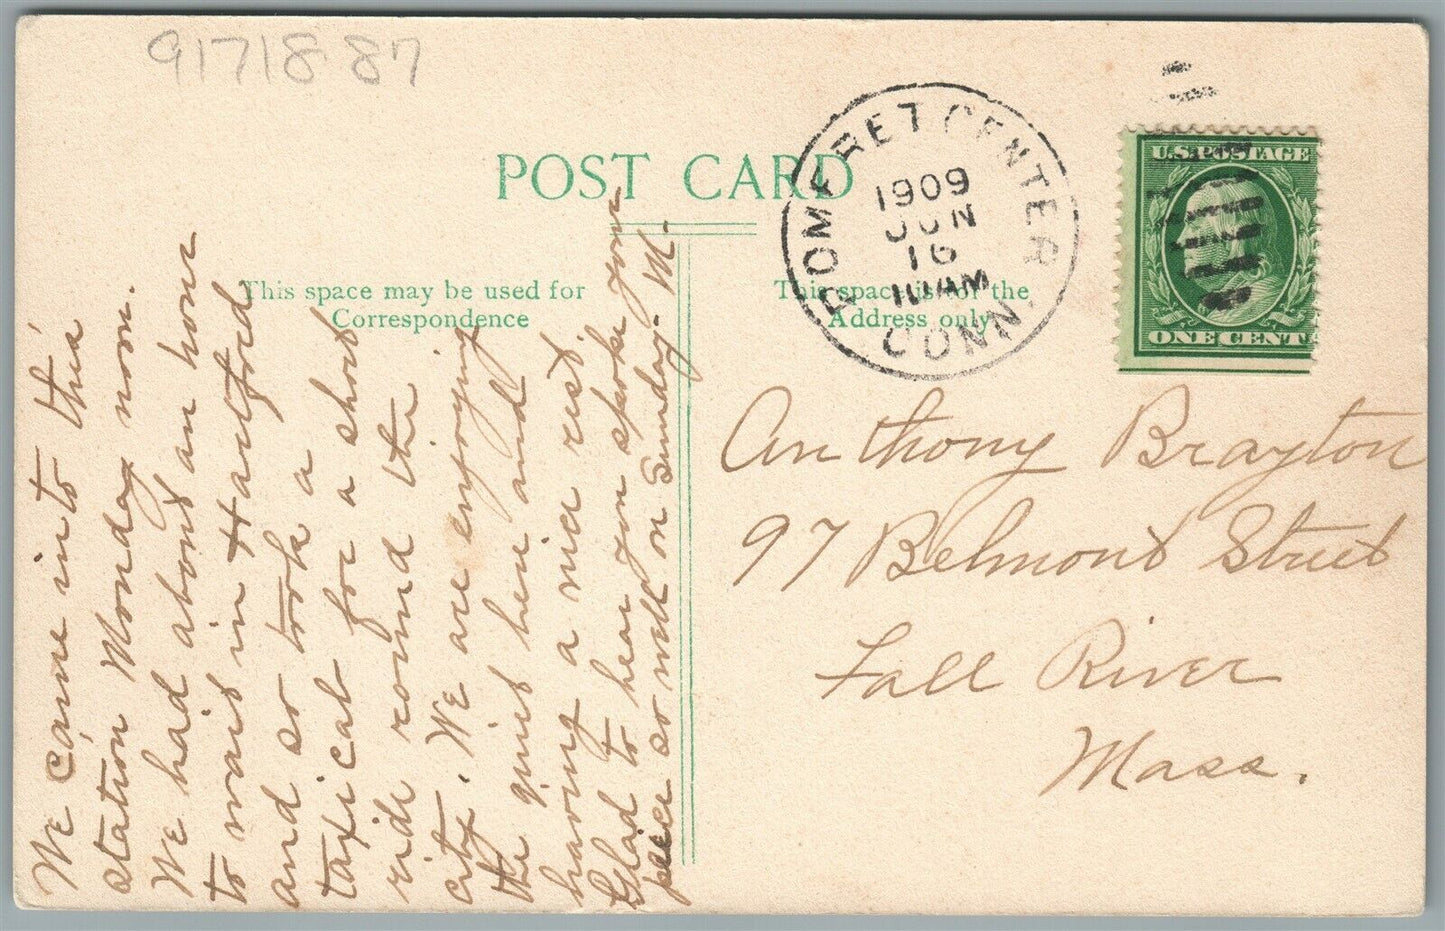 9171887
POST CARD
POMFRET CENTER
1909
JUN
16
10 AM
CONN.
U.S. POSTAGE
ONE CENT
This space may be used for
Correspondence
This space is for the
Address only
We came in to this
station Monday noon.
We had about an hour
to wait in Hartford
and so took a
taxicab for a short
ride round the
city. We are enjoying
the quiet here and
having a nice rest.
Glad to hear you spoke your
piece so well on Sunday. M.
Anthony Brayton
97 Belmont Street
Fall River
Mass.